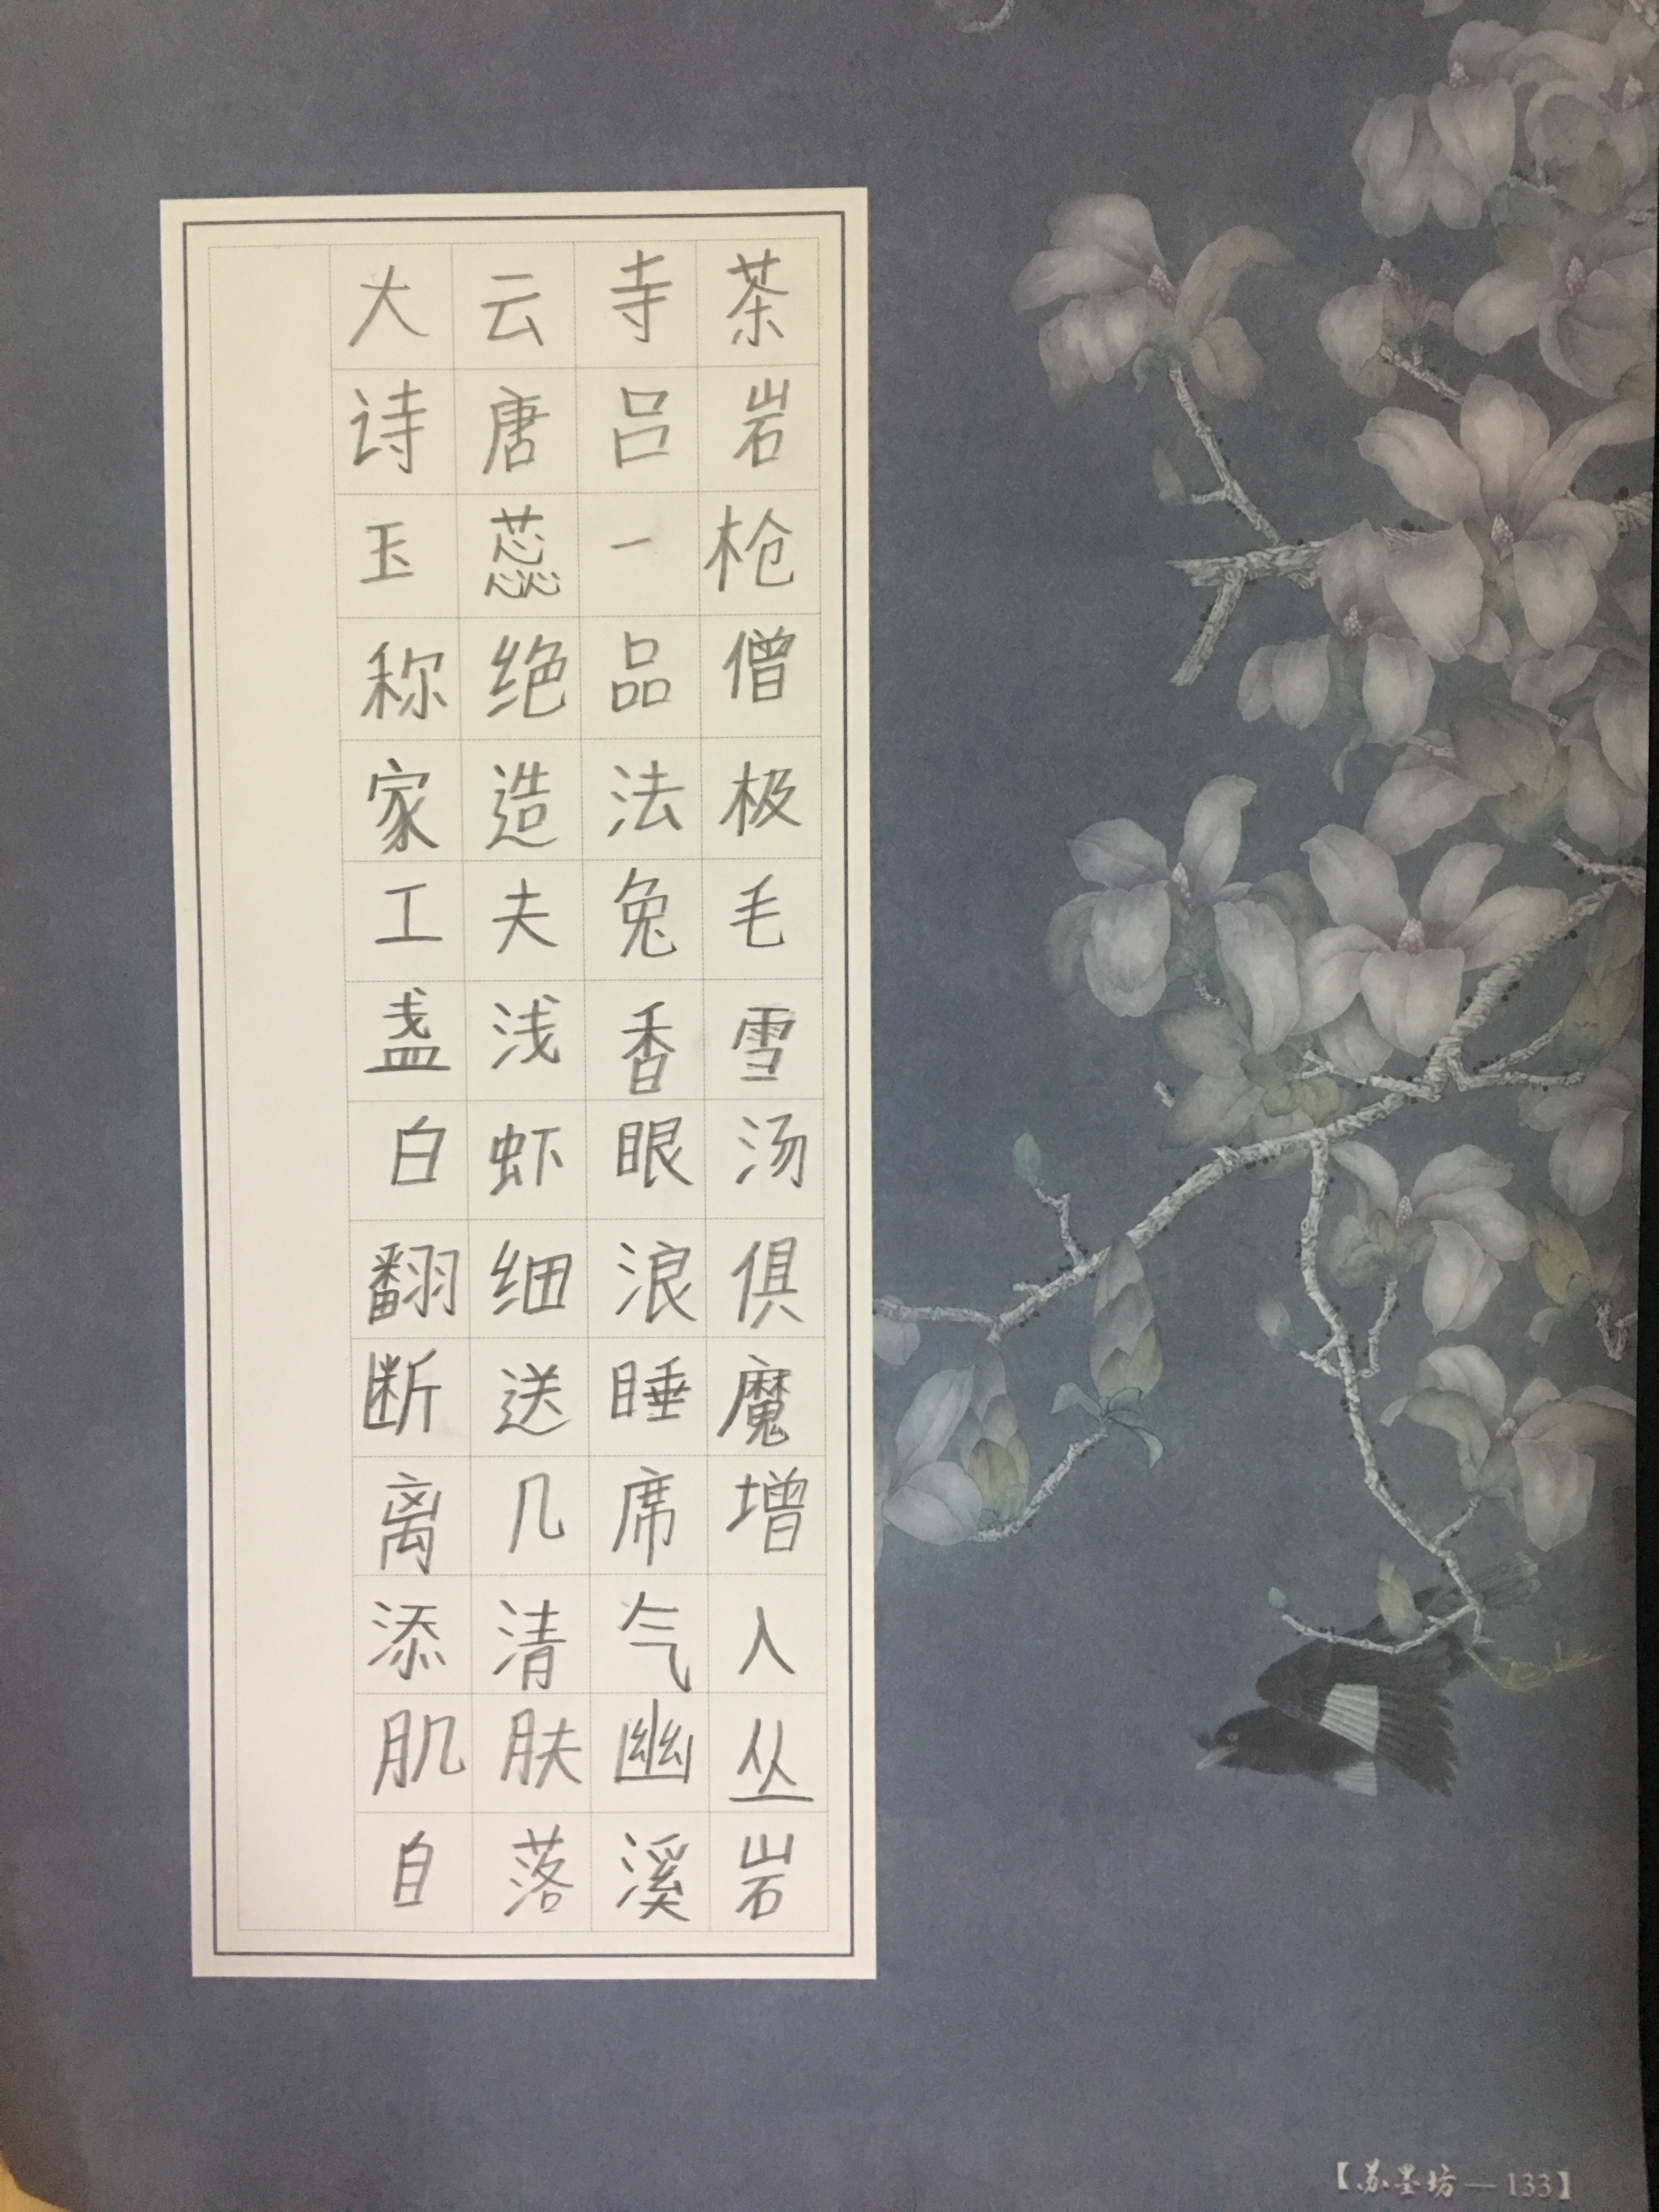 大云寺茶
诗唐吕岩
玉蕊一枪
称绝品僧
家造法极
工夫兔毛
盏浅香雪
白虾眼汤
翻细浪俱
断送睡魔
离几席增
添清气入
肌肤幽丛
自落溪岩
【苏墨坊—133】